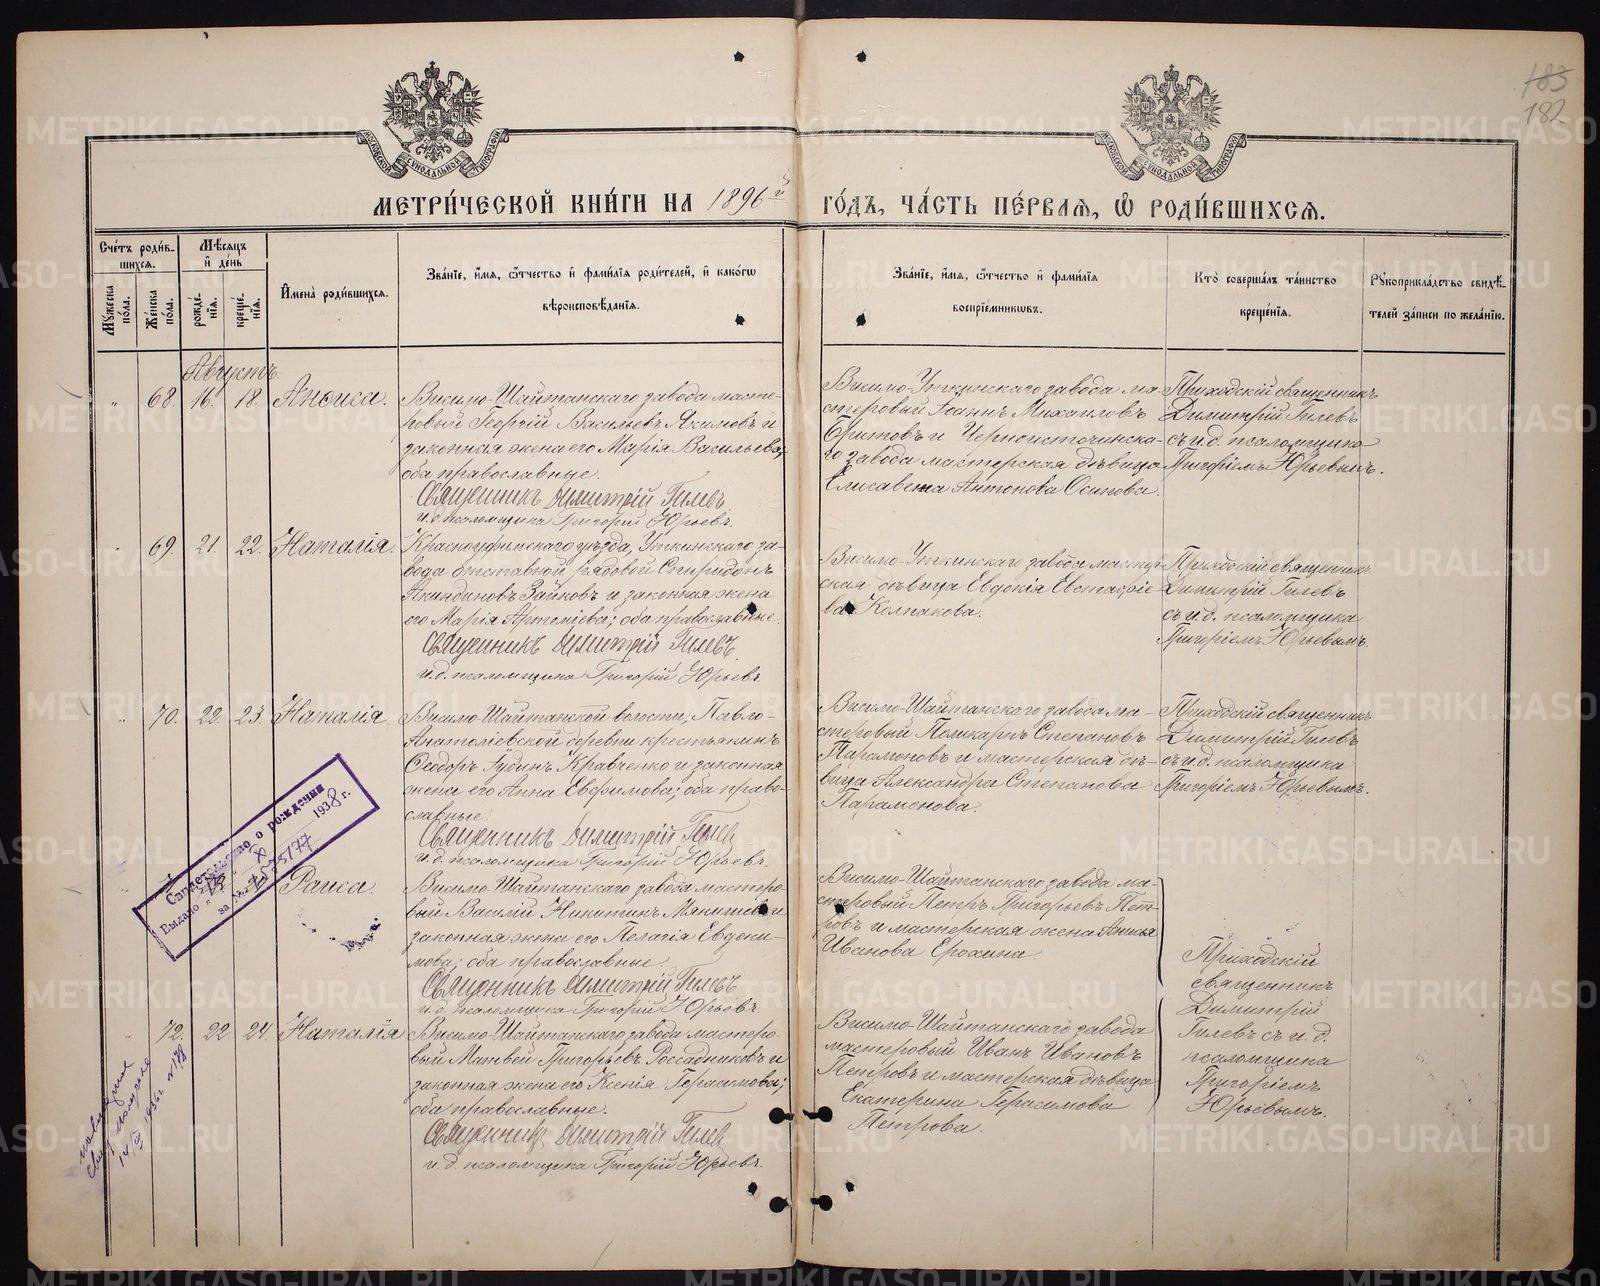 183
182
МОСКОВСКОЙ СѴНОДАЛЬНОЙ ТИПОГРАФІИ
МОСКОВСКОЙ СѴНОДАЛЬНОЙ ТИПОГРАФІИ
МЕТРИ́ЧЕСКОЙ КНИ́ГИ НА 1896й ГО́ДЪ, ЧА́СТЬ ПЕ́РВАЯ, Ѡ РОДИ́ВШИХСЯ.
Сче́тъ роди́в-
шихся.
Мѣ́сяцъ
и҆ де́нь
Мꙋжеска по́ла.
Же́нска по́ла.
рожде́нїя.
креще́нїя.
И҆мена̀ роди́вшихся.
Зва́нїе, и҆́мя, ѻ҆́тчество и҆ фами́лїя роди́телей, и҆ како́гѡ
вѣроисповѣ́данїя.
Зва́нїе, и҆́мя, ѻ҆́тчество и҆ фами́лїя
воспрїе́мникѡвъ.
Кто̀ соверша́лъ та́инство
креще́нїя.
Рꙋкоприкла́дство свидѣ́-
телей за́писи по жела́нїю.
Августъ.
" 68. 16. 18. Анѳиса.
Висимо-Шайтанскаго завода масте-
ровый Георгій Васильевъ Якимовъ и
законная жена его Марія Васильева;
оба православные.
Священникъ Димитрій Гилевъ
и.д. псаломщика Григорій Юрьевъ.
Висимо-Уткинскаго завода ма-
стеровый Іоаннъ Михаиловъ
Оритовъ и Черноисточинска-
го завода мастерская дѣвица
Елисавета Антонова Осипова.
Приходскій священникъ
Димитрій Гилевъ
съ и.д. псаломщика
Григоріемъ Юрьевымъ.
" 69. 21. 22. Наталія.
Красноуфимскаго уѣзда, Уткинскаго за-
вода отставной рядовой Спиридонъ
Акиндиновъ Зайковъ и законная жена
его Марія Артеміева; оба православные.
Священникъ Димитрій Гилевъ.
и.д. псаломщика Григорій Юрьевъ.
Висимо-Уткинскаго завода мастер-
ская дѣвица Евдокія Евстафіе-
ва Колпакова.
Приходскій священникъ
Димитрій Гилевъ
съ и.д. псаломщика
Григоріемъ Юрьевымъ.
" 70. 22. 23. Наталія.
Висимо-Шайтанской волости, Павло-
Анатоліевской деревни крестьянинъ
Ѳеодоръ Кравченко и законная
жена его Анна Евфимова; оба право-
славные.
Священникъ Димитрій Гилев
и.д. псаломщика Григорій Юрьевъ.
Висимо-Шайтанскаго завода ма-
стеровый Поликарпъ Степановъ
Парамоновъ и мастерская дѣ-
вица Александра Степанова
Парамонова.
Приходскій священникъ
Димитрій Гилевъ
съ и.д. псаломщика
Григоріемъ Юрьевымъ.
Свидетельство о рождении
Выдано " X 1938 г.
за №
Раиса.
Висимо-Шайтанскаго завода мастеро-
вый Василій Никитинъ и
законная жена его Пелагія Евдоки-
мова; оба православные.
Священникъ Димитрій Гилевъ
и.д. псаломщика Григорій Юрьевъ.
Висимо-Шайтанскаго завода ма-
стеровый Петръ Григорьевъ Пет-
ровъ и мастерская жена Анисья
Иванова Ерохина.
" 72. 22. 24. Наталія
Висимо-Шайтанскаго завода мастеро-
вый Матвей Григорьевъ Россадниковъ и
законная жена его Ксенія Герасимова;
оба православные.
Священникъ Димитрій Гилев
и.д. псаломщика Григорій Юрьевъ.
Висимо-Шайтанскаго завода
мастеровый Иванъ Ивановъ
Петровъ и мастерская дѣвица
Екатерина Герасимова
Петрова.
Приходскій
священникъ
Димитрій
Гилевъ съ и.д.
псаломщика
Григоріемъ
Юрьевымъ.
METRIKI.GASO-URAL.RU